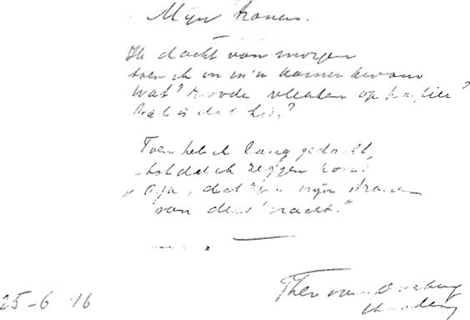 Mijn tranen.
Ik dacht van morgen
toen ik in m'n kamer kwam
Wat? Roode vlekken op papier?
Wat is dat hier?
Toen heb ik lang gedacht,
totdat ik zeggen kon:
"O ja, dat zijn mijn tranen
van deez' nacht."
25-6 16
Theo van Doesburg